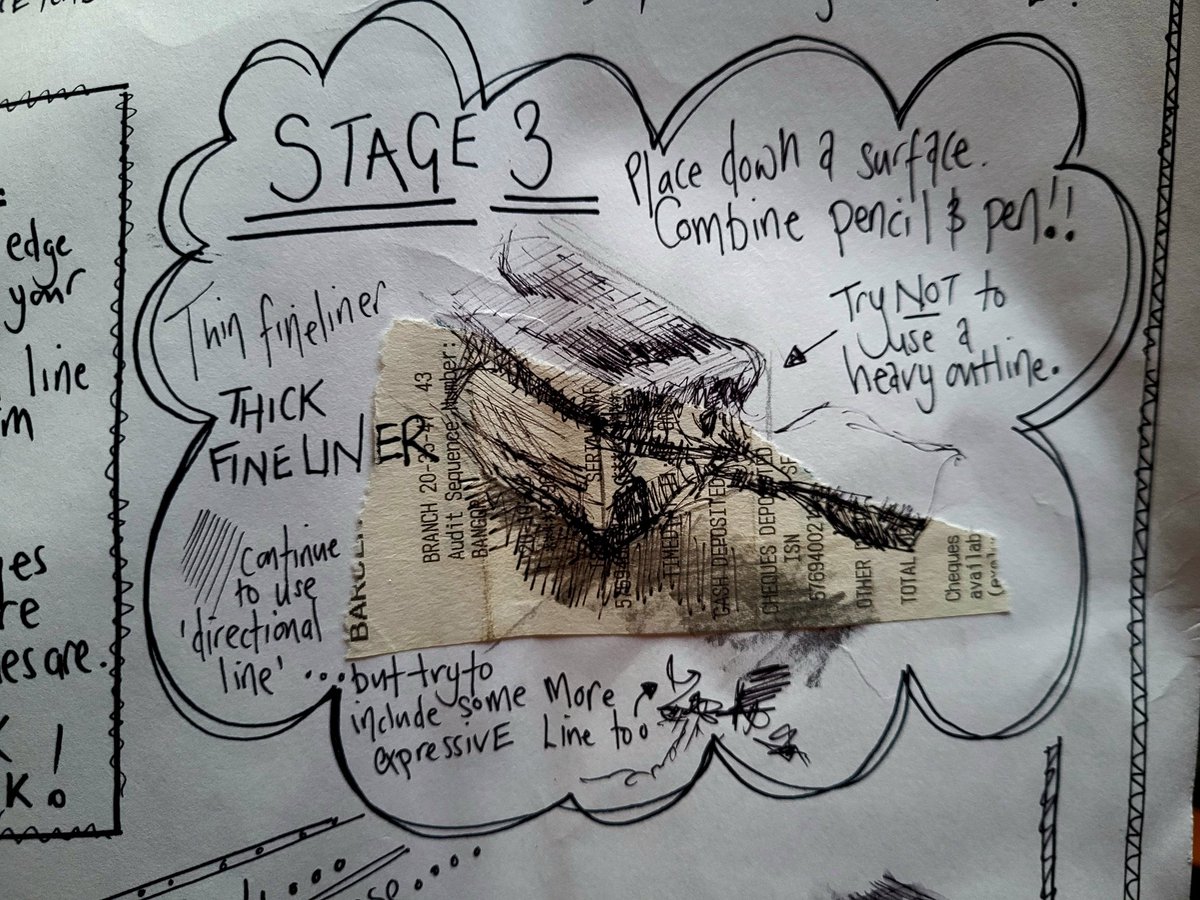 STAGE 3
Place down a surface.
Combine pencil & pen!!
Try NOT to
use a
heavy outline.
Thin fineliner
THICK
FINELINER
Continue
to use
'directional
line' ...but try to
include some more
expressive Line too
edge
your
line
BRANCH 20-
43
Audit Sequence Number:
CASH DEPOSITED
CHEQUES DEPOSITED
ISN
57694002
OTHER
TOTAL
Cheques
availab